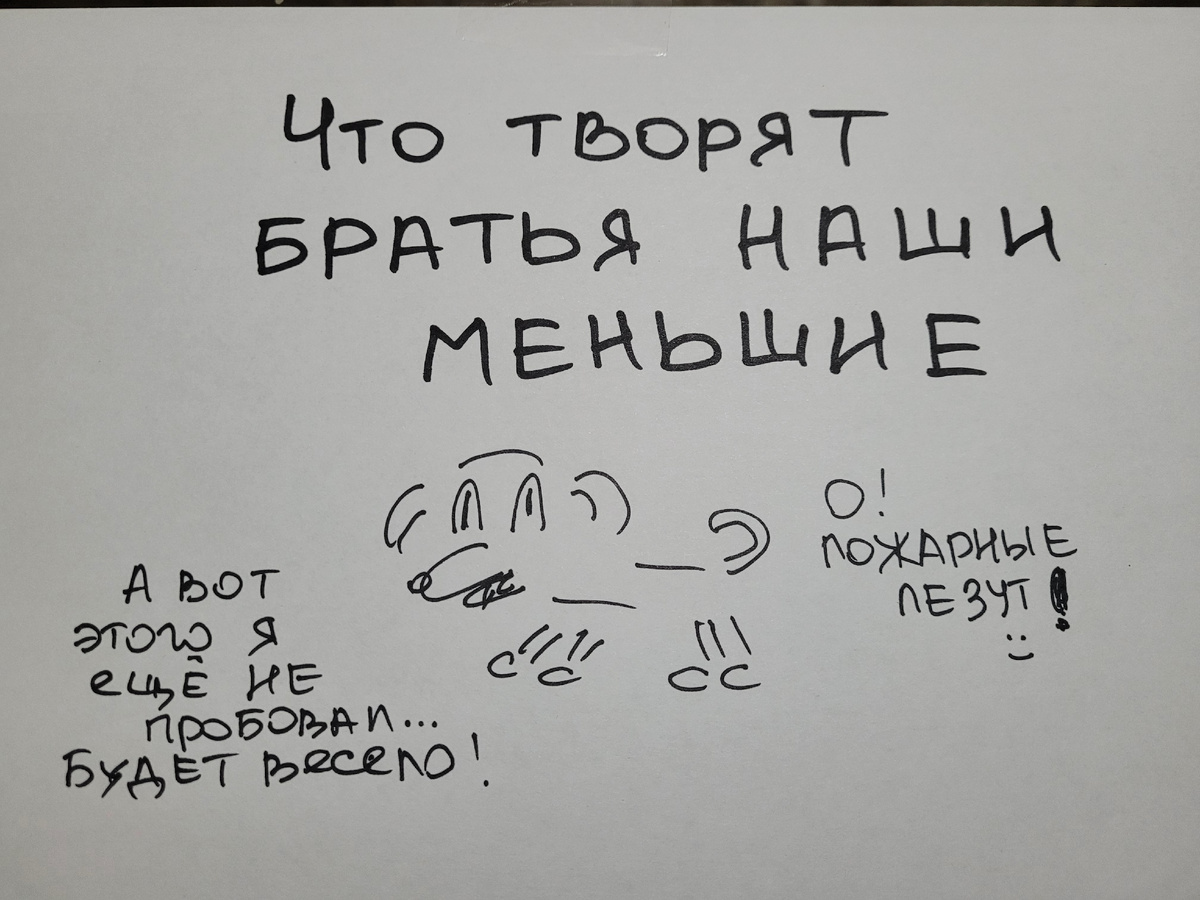 Что творят
БРАТЬЯ НАШИ
МЕНЬШИЕ
А ВОТ
этого я
ещё НЕ
ПРОБОВАЛ...
БУДЕТ весело!
О!
ПОЖАРНЫЕ
ЛЕЗУТ!